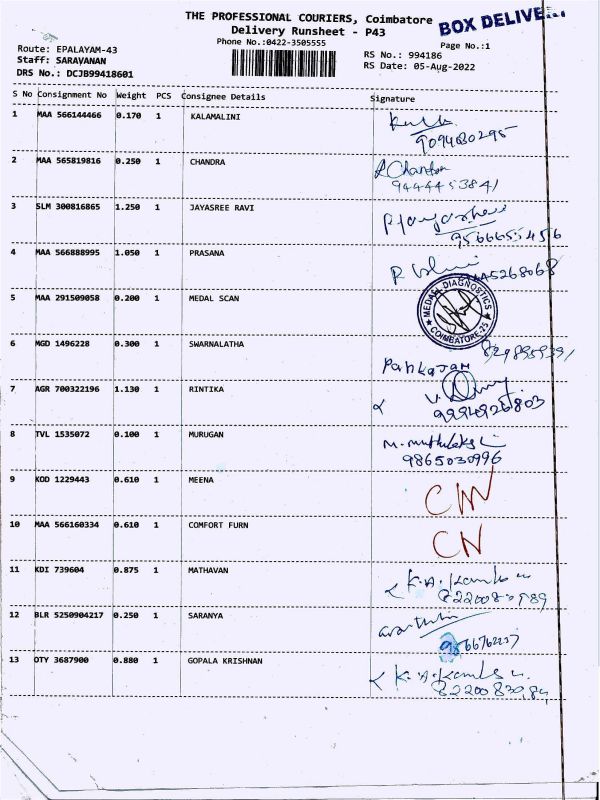 THE PROFESSIONAL COURIERS, Coimbatore
BOX DELIVE
Delivery Runsheet - P43
Phone No.:0422-3505555
Page No.:1
Route: EPALAYAM-43
RS No.: 994186
Staff: SARAVANAN
RS Date: 05-Aug-2022
DRS No.: DCJB99418601
S No Consignment No Weight PCS Consignee Details Signature
1 MAA 566144466 0.170 1 KALAMALINI
9094680295
2 MAA 565819816 0.250 1 CHANDRA
Chandra
9444453841
3 SLM 300816865 1.250 1 JAYASREE RAVI
9566655456
4 MAA 566888995 1.050 1 PRASANA
5 MAA 291509058 0.200 1 MEDAL SCAN
MEDALL DIAGNOSTICS
COIMBATORE-25
6 MGD 1496228 0.300 1 SWARNALATHA
PANKAJAM
7 AGR 700322196 1.130 1 RINTIKA
9994926803
8 TVL 1535072 0.100 1 MURUGAN
9865030996
9 KOD 1229443 0.610 1 MEENA
CN
10 MAA 566160334 0.610 1 COMFORT FURN
CN
11 KDI 739604 0.875 1 MATHAVAN
12 BLR 5250904217 0.250 1 SARANYA
13 OTY 3687900 0.880 1 GOPALA KRISHNAN